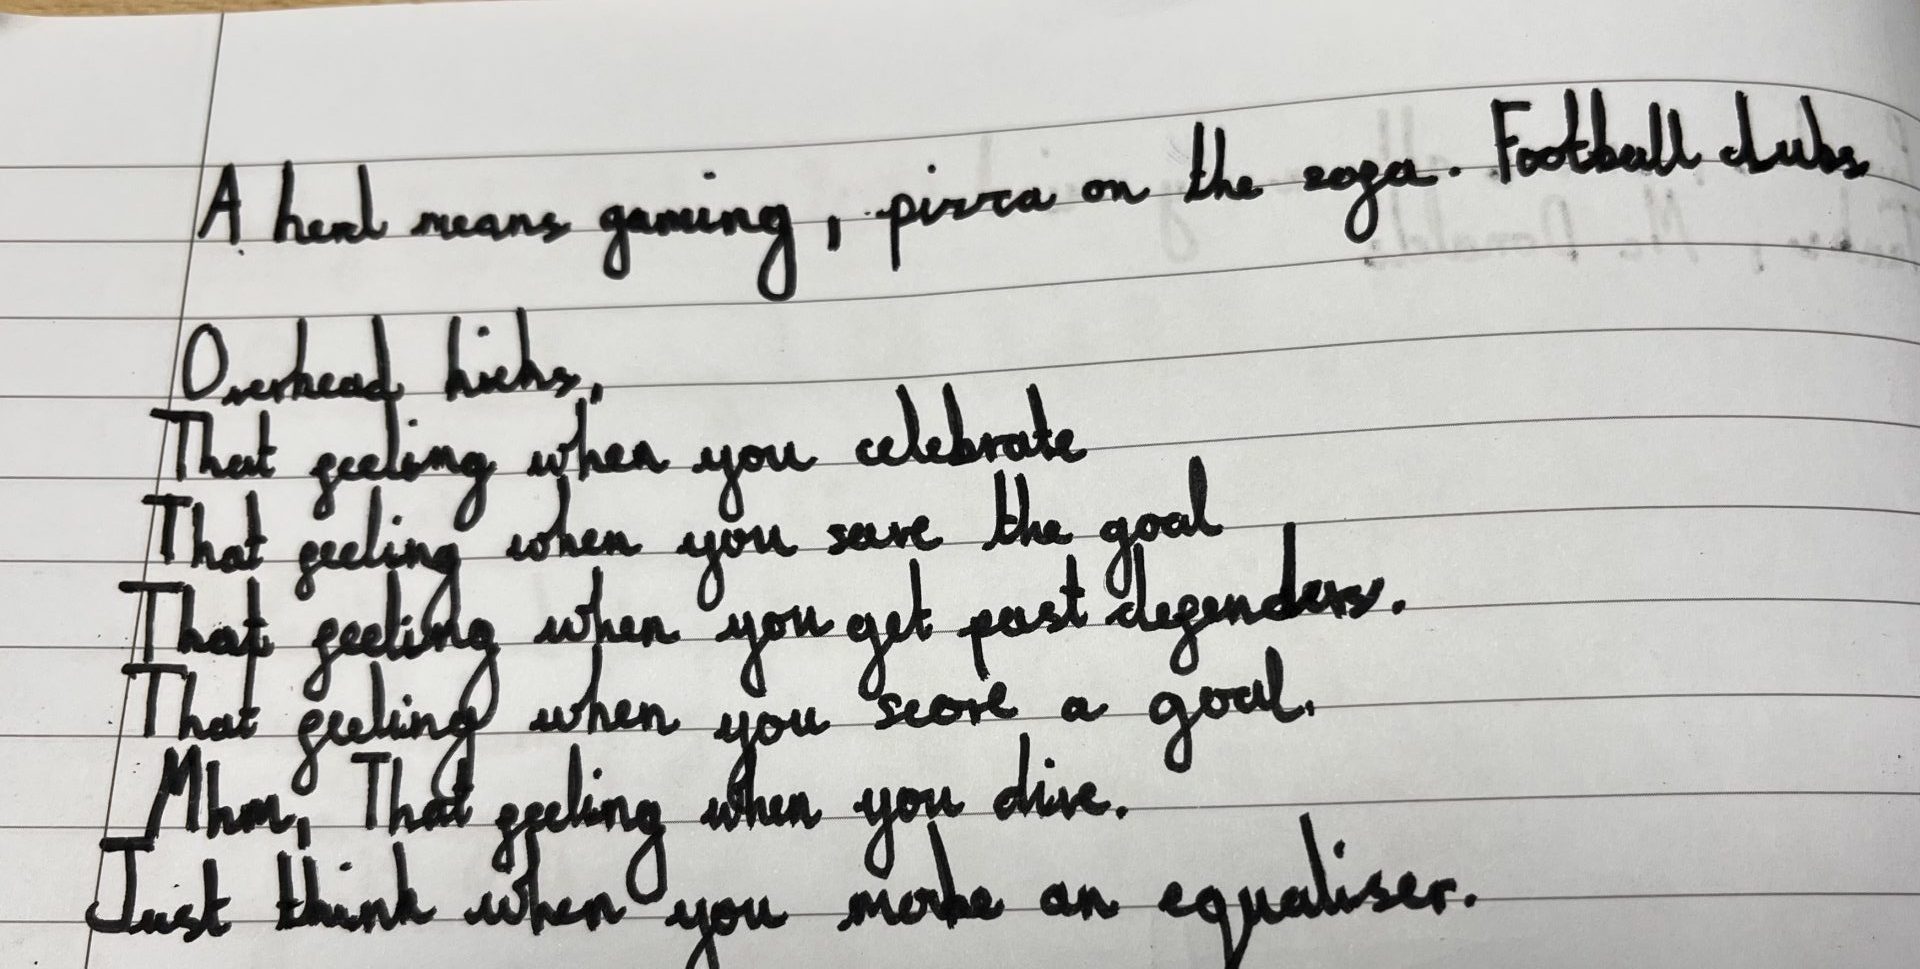 A herd means gaming, pizza on the sofa. Football clubs
Overhead kicks,
That feeling when you celebrate
That feeling when you save the goal
That feeling when you get past defenders.
That feeling when you score a goal.
Mhm, That feeling when you dive.
Just think when you make an equaliser.